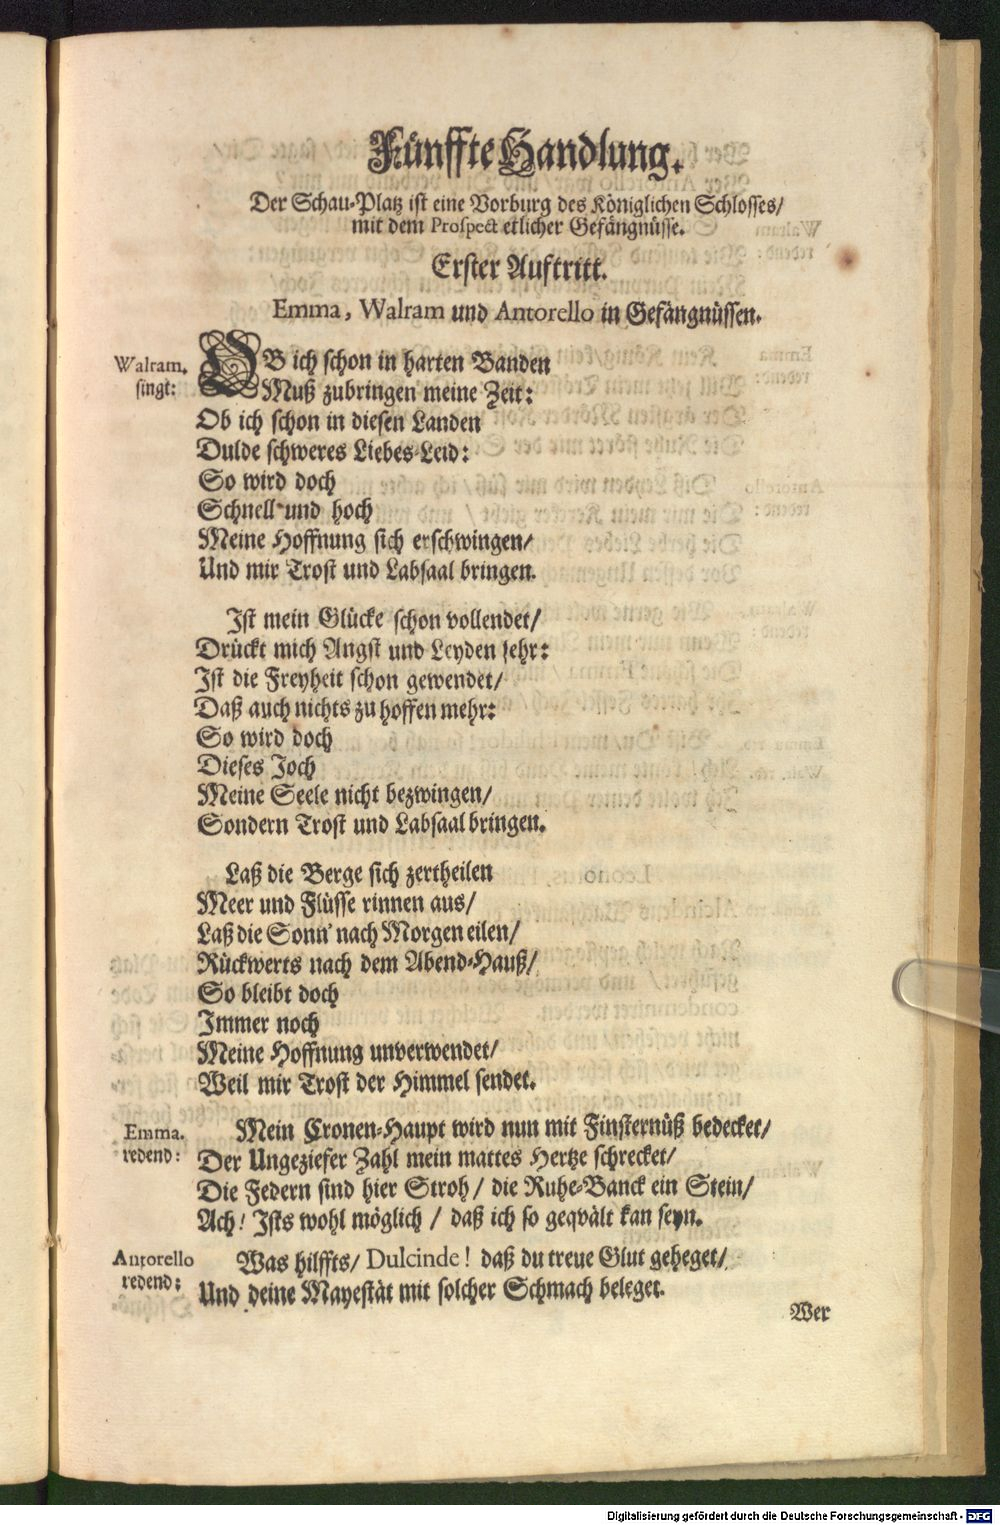 Fünffte Handlung.
Der Schau-Platz ist eine Vorburg des Königlichen Schlosses/
mit dem Prospect etlicher Gefängnüsse.
Erster Auftritt.
Emma, Walram und Antorello in Gefängnüssen.
Walram.
singt:
OB ich schon in harten Banden
Muß zubringen meine Zeit:
Ob ich schon in diesen Landen
Dulde schweres Liebes-Leid:
So wird doch
Schnell und hoch
Meine Hoffnung sich erschwingen/
Und mir Trost und Labsaal bringen.
Ist mein Glücke schon vollendet/
Drückt mich Angst und Leyden sehr:
Ist die Freyheit schon gewendet/
Daß auch nichts zu hoffen mehr:
So wird doch
Dieses Joch
Meine Seele nicht bezwingen/
Sondern Trost und Labsaal bringen.
Laß die Berge sich zertheilen
Meer und Flüsse rinnen aus/
Laß die Sonn' nach Morgen eilen/
Rückwerts nach dem Abend-Hauß/
So bleibt doch
Immer noch
Meine Hoffnung unverwendet/
Weil mir Trost der Himmel sendet.
Emma.
redend:
Mein Cronen-Haupt wird nun mit Finsternüß bedecket/
Der Ungeziefer Zahl mein mattes Hertze schrecket/
Die Federn sind hier Stroh/ die Ruhe-Banck ein Stein/
Ach! Ists wohl möglich/ daß ich so geqvält kan seyn.
Antorello
redend:
Was hilffts/ Dulcinde! daß du treue Glut geheget/
Und deine Mayestät mit solcher Schmach beleget.
Wer
Digitalisierung gefördert durch die Deutsche Forschungsgemeinschaft - DFG